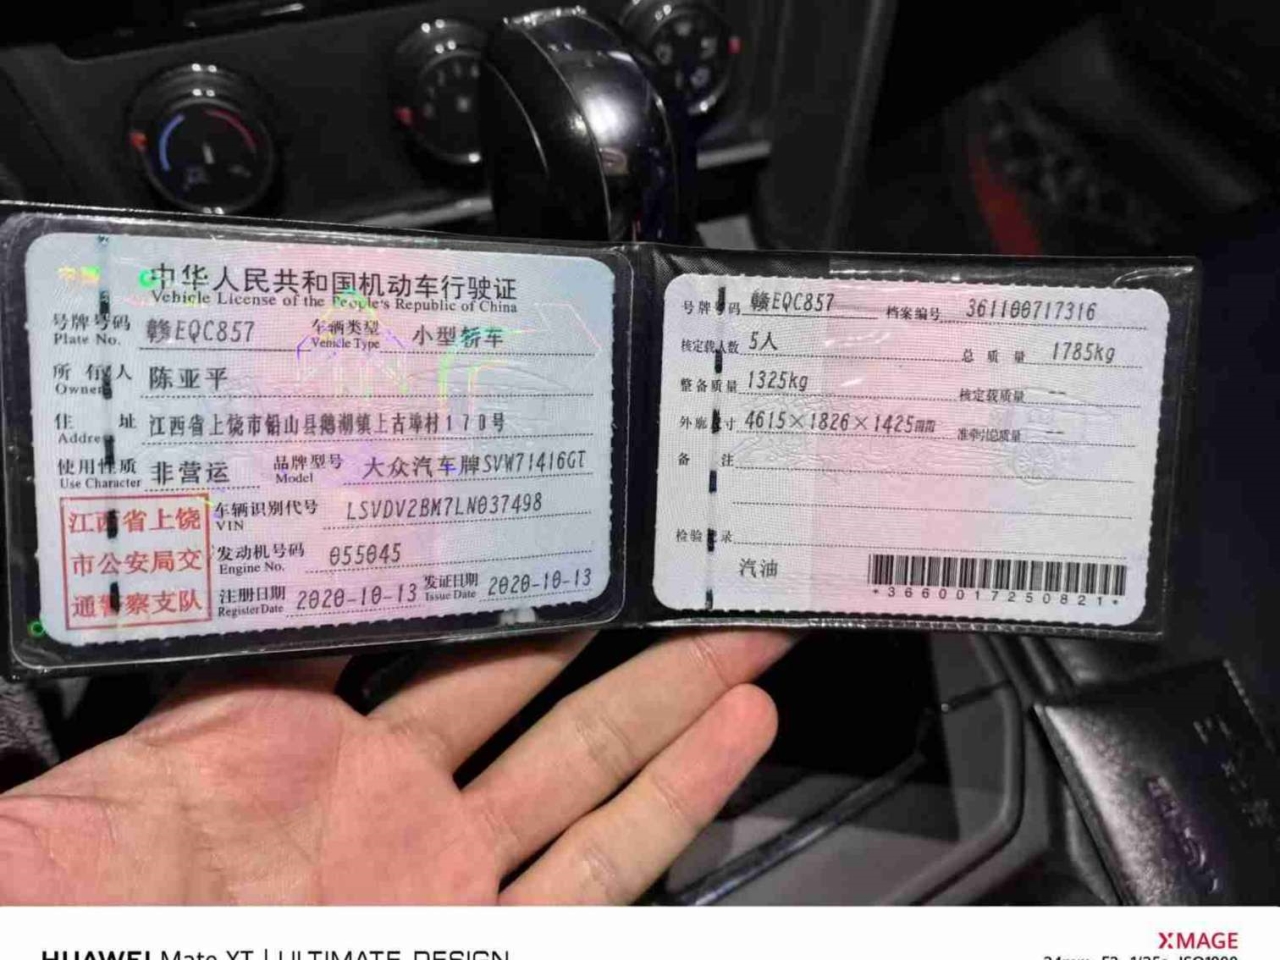 中华人民共和国机动车行驶证
Vehicle License of the People's Republic of China
号牌号码 赣EQC857 车辆类型 小型轿车
Plate No. Vehicle Type
所有人 陈亚平
Owner
住址 江西省上饶市铅山县鹅湖镇上古埠村170号
Address
使用性质 非营运 品牌型号 大众汽车牌SVW71416GT
Use Character Model
江西省上饶
市公安局交
通警察支队
车辆识别代号 LSVDV2BM7LN037498
VIN
发动机号码 055045
Engine No.
注册日期 2020-10-13 发证日期 2020-10-13
Register Date Issue Date
号牌号码 赣EQC857 档案编号 361100717316
核定载人数 5人 总质量 1785kg
整备质量 1325kg 核定载质量 --
外廓尺寸 4615×1826×1425mm 准牵引总质量 --
备注
检验记录
汽油
*3660017250821*
HUAWEI Mate XT | ULTIMATE DESIGN
XMAGE